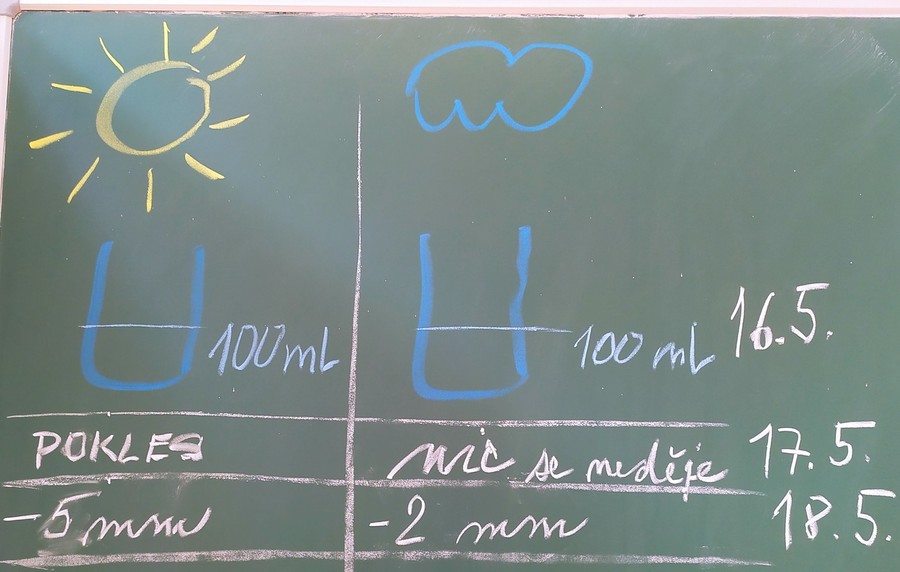 100 ml 100 ml 16.5.
POKLES nic se neděje 17.5.
-5 mm -2 mm 18.5.